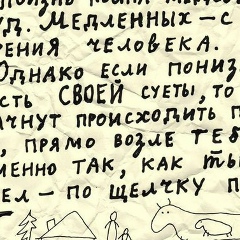 УД. МЕДЛЕННЫХ – С
РЕНИЯ ЧЕЛОВЕКА.
ОДНАКО ЕСЛИ ПОНИЗ
СТЬ СВОЕЙ СУЕТЫ, ТО
АЧНУТ ПРОИСХОДИТЬ П
, ПРЯМО ВОЗЛЕ ТЕБ
МЕННО ТАК, КАК ТЫ
ЕЛ – ПО ЩЕЛЧКУ П